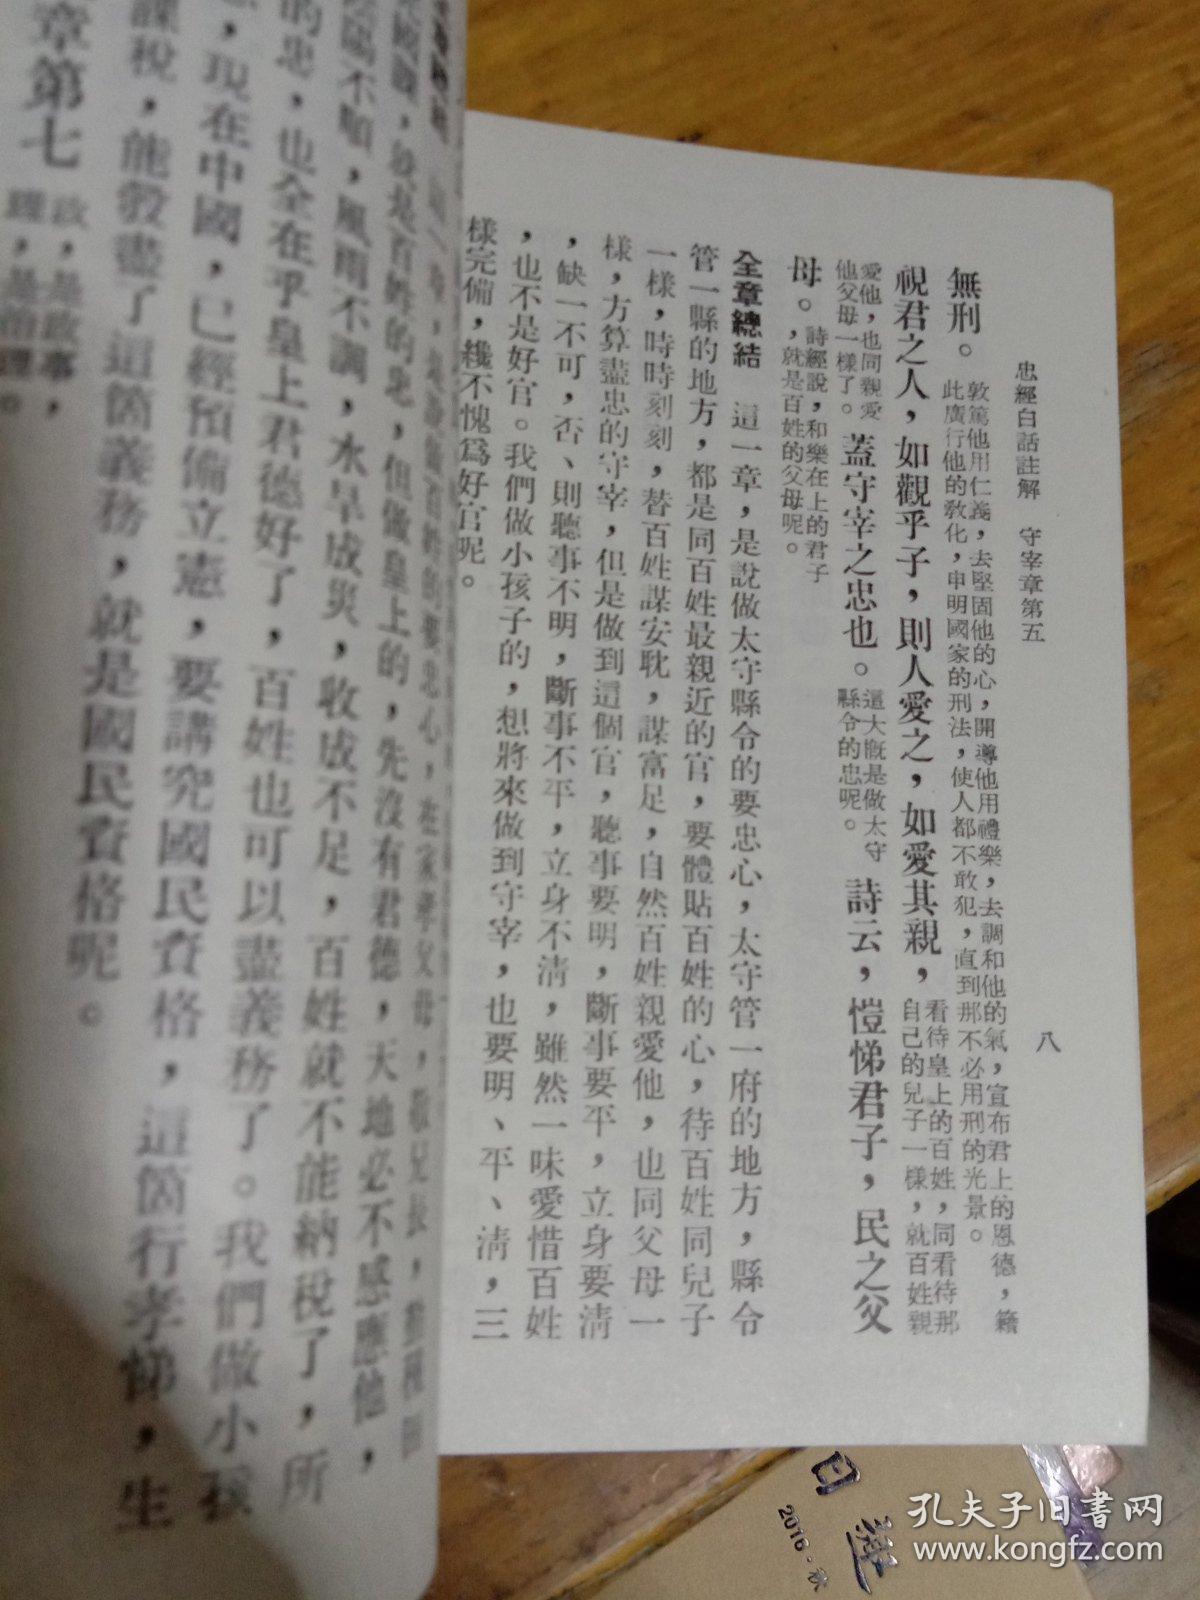 忠經白話註解　守宰章第五
八
無刑。敦篤他用仁義，去堅固他的心，開導他用禮樂，去調和他的氣，宣布君上的恩德，籍
此廣行他的教化，申明國家的刑法，使人都不敢犯，直到那不必用刑的光景。
視君之人，如觀乎子，則人愛之，如愛其親，看待皇上的百姓，同看待那
自己的兒子一樣，就百姓親
愛他，也同親愛
他父母一樣了。蓋守宰之忠也。這大旣是做太守
縣令的忠呢。詩云，愷悌君子，民之父
母。詩經說，和樂在上的君子
，就是百姓的父母呢。
全章總結　這一章，是說做太守縣令的要忠心，太守管一府的地方，縣令
管一縣的地方，都是同百姓最親近的官，要體貼百姓的心，待百姓同兒子
一樣，時時刻刻，替百姓謀安耽，謀富足，自然百姓親愛他，也同父母一
樣，方算盡忠的守宰，但是做到這個官，聽事要明，斷事要平，立身要淸
，缺一不可，否、則聽事不明，斷事不平，立身不淸，雖然一味愛惜百姓
，也不是好官。我們做小孩子的，想將來做到守宰，也要明、平、淸，三
樣完備，纔不愧爲好官呢。
國課，就是百姓的忠，但做皇上的，先沒有君德，天地必不感應他，
陰陽不順，風雨不調，水旱成災，收成不足，百姓就不能納稅了，所
的忠，也全在乎皇上君德好了，百姓也可以盡義務了。我們做小孩
，現在中國，已經預備立憲，要講究國民資格，這箇行孝悌，生
課稅，能敎盡了這箇義務，就是國民資格呢。
章第七　政，是政事，
理，是治理。
2016·秋
孔夫子旧书网
www.kongfz.com